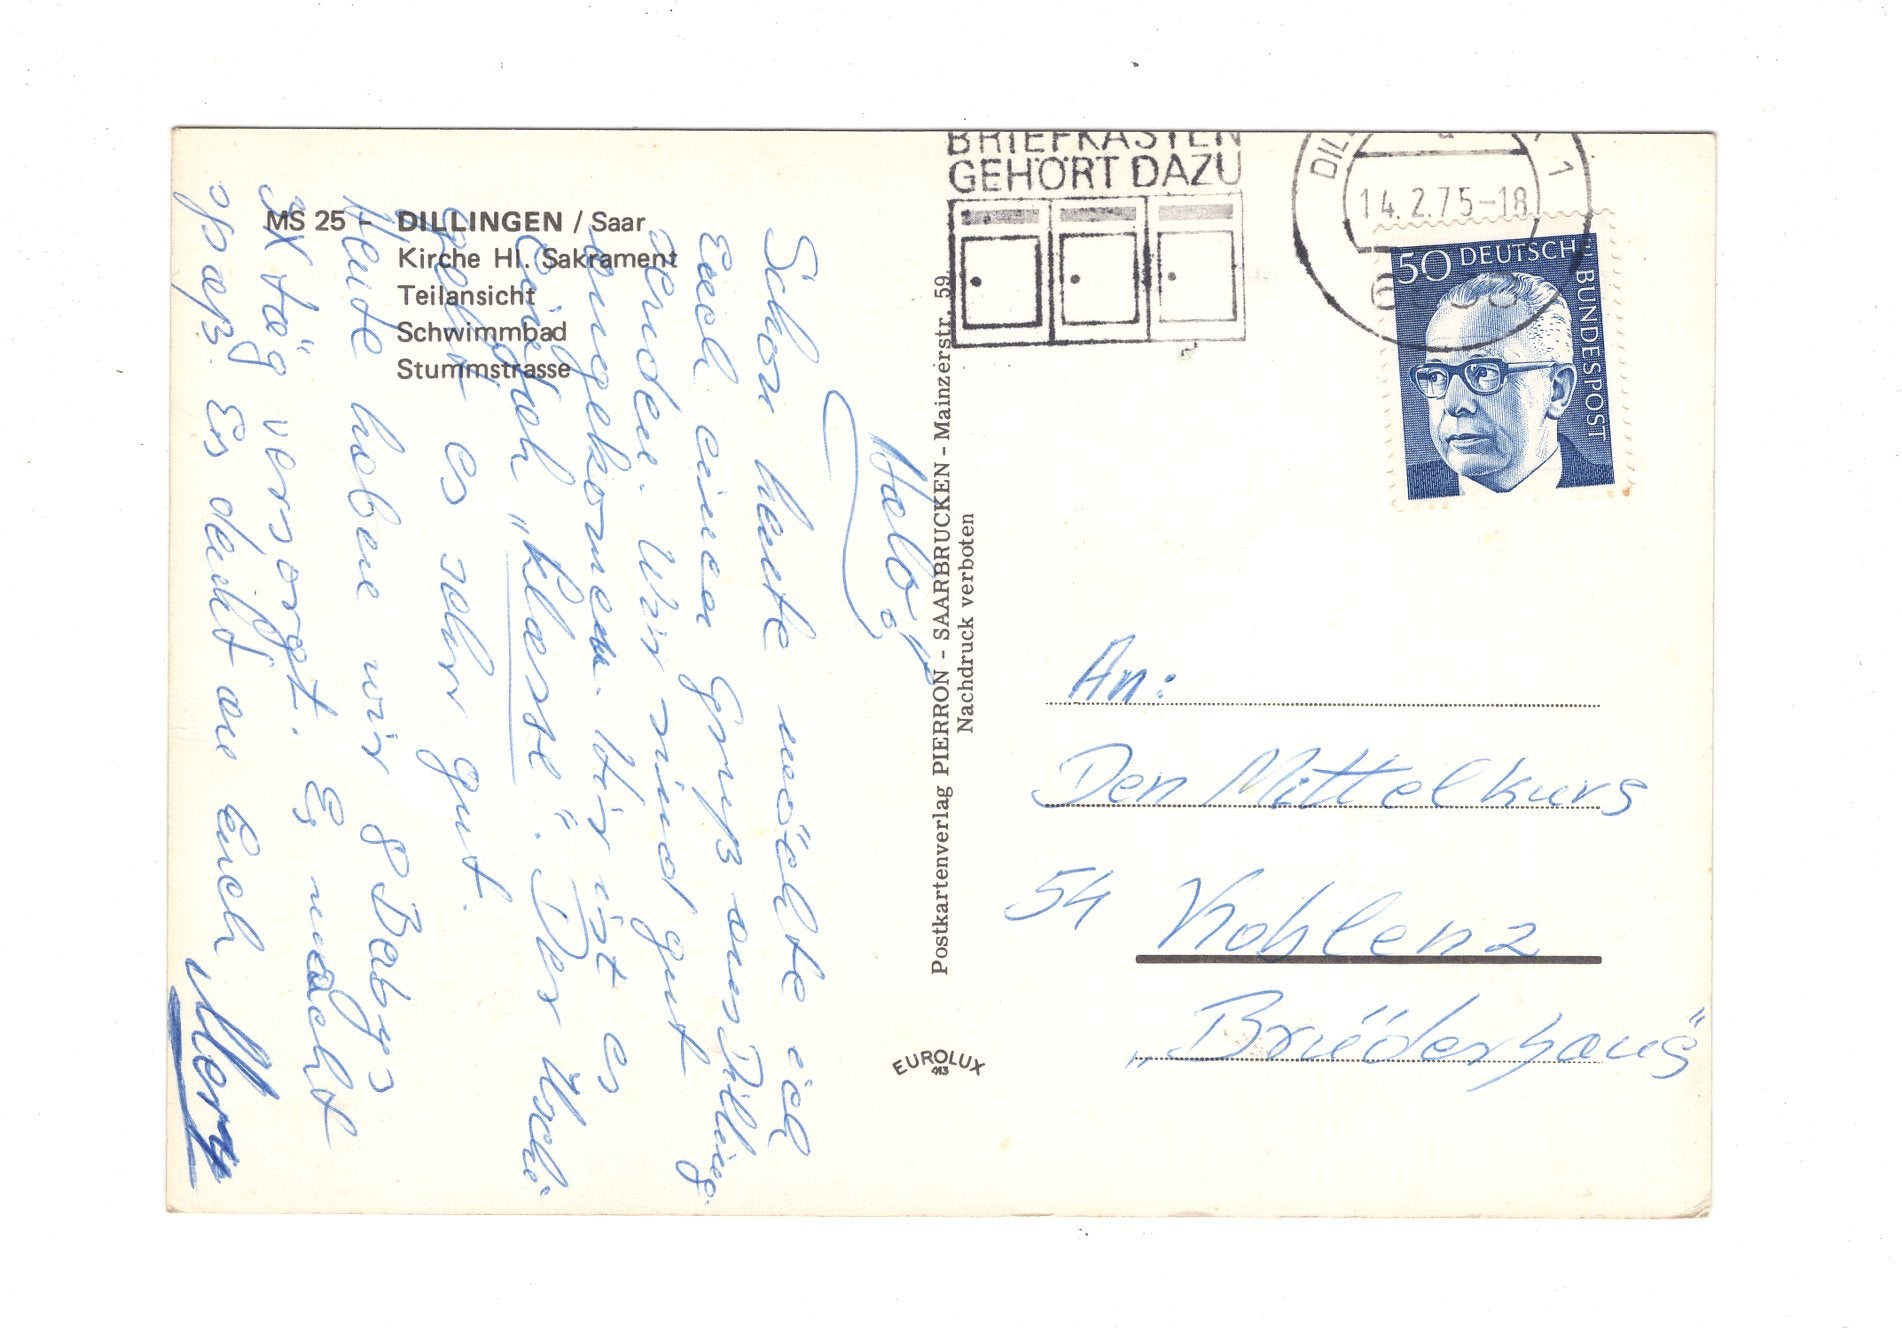 MS 25 - DILLINGEN / Saar
Kirche Hl. Sakrament
Teilansicht
Schwimmbad
Stummstrasse
Hallo!
Schon heute möchte ich
Euch einen Gruß aus Dilling.
senden. Wir sind gut
angekommen. Hir ist es
einfach „Klasse". Der Uschi
geht es sehr gut.
Heute haben wir 8 Babys
versorgt. Es macht
spaß. Es denkt an Euch
Postkartenverlag PIERRON - SAARBRÜCKEN - Mainzerstr. 59
Nachdruck verboten
EUROLUX
BRIEFKASTEN
GEHÖRT DAZU
14.2.75-18
1
50 DEUTSCHE BUNDESPOST
An:
Den Mittelkurs
54 Koblenz
„Brüderhaus"